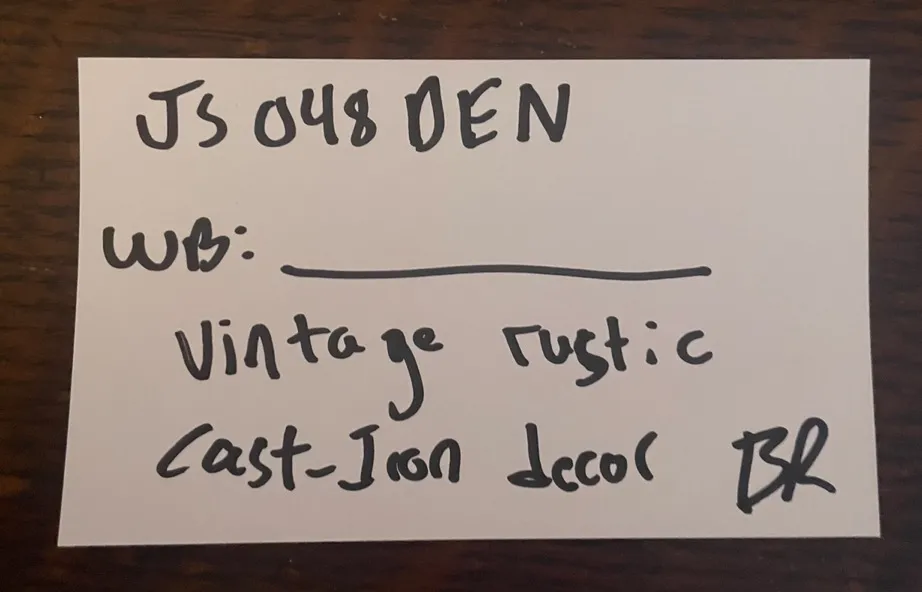 JS 048 DEN
WB: ___________
Vintage rustic
Cast-Iron decor BR